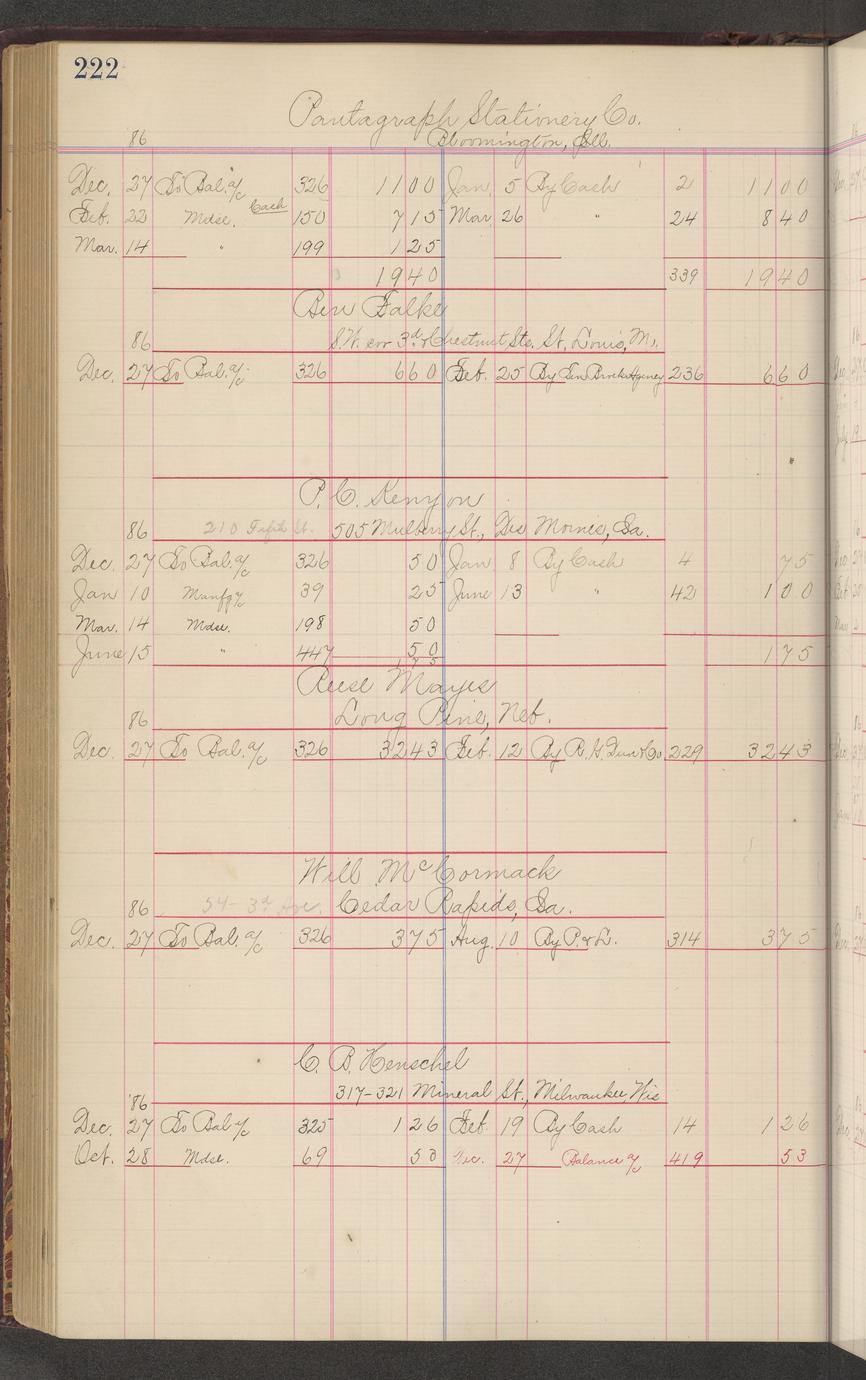 222
Pantagraph Stationery Co.
86 Bloomington, Ill.
Dec. 27 To Bal. a/c 326 11 00 Jan. 5 By Cash 2 11 00
Feb. 22 Mdse. Cash 150 7 15 Mar. 26 " 24 8 40
Mar. 14 " 199 1 25
19 40 339 19 40
Ben Falke
86 S.W. cor 3d & Chestnut Sts. St. Louis, Mo.
Dec. 27 To Bal. a/c 326 6 60 Feb. 25 By Agency 236 6 60
P. C. Kenyon
86 210 Fifth St. 505 Mulberry St., Des Moines, Ia.
Dec. 27 To Bal. a/c 326 50 Jan 8 By Cash 4 75
Jan 10 Manfg a/c 39 25 June 13 " 42 1 00
Mar. 14 Mdse. 198 50
June 15 " 447 50 1 75
1 75
Reese Mayes
86 Long Pine, Neb.
Dec. 27 To Bal. a/c 326 32 43 Feb. 12 By R. G. Dun & Co 229 32 43
Will McCormack
86 54 - 3d Ave. Cedar Rapids, Ia.
Dec. 27 To Bal. a/c 326 3 75 Aug. 10 By P. & L. 314 3 75
C. B. Henschel
'86 317-321 Mineral St., Milwaukee Wis
Dec. 27 To Bal a/c 325 1 26 Feb. 19 By Cash 14 1 26
Oct. 28 Mdse. 69 53 Dec. 27 Balance a/c 419 53